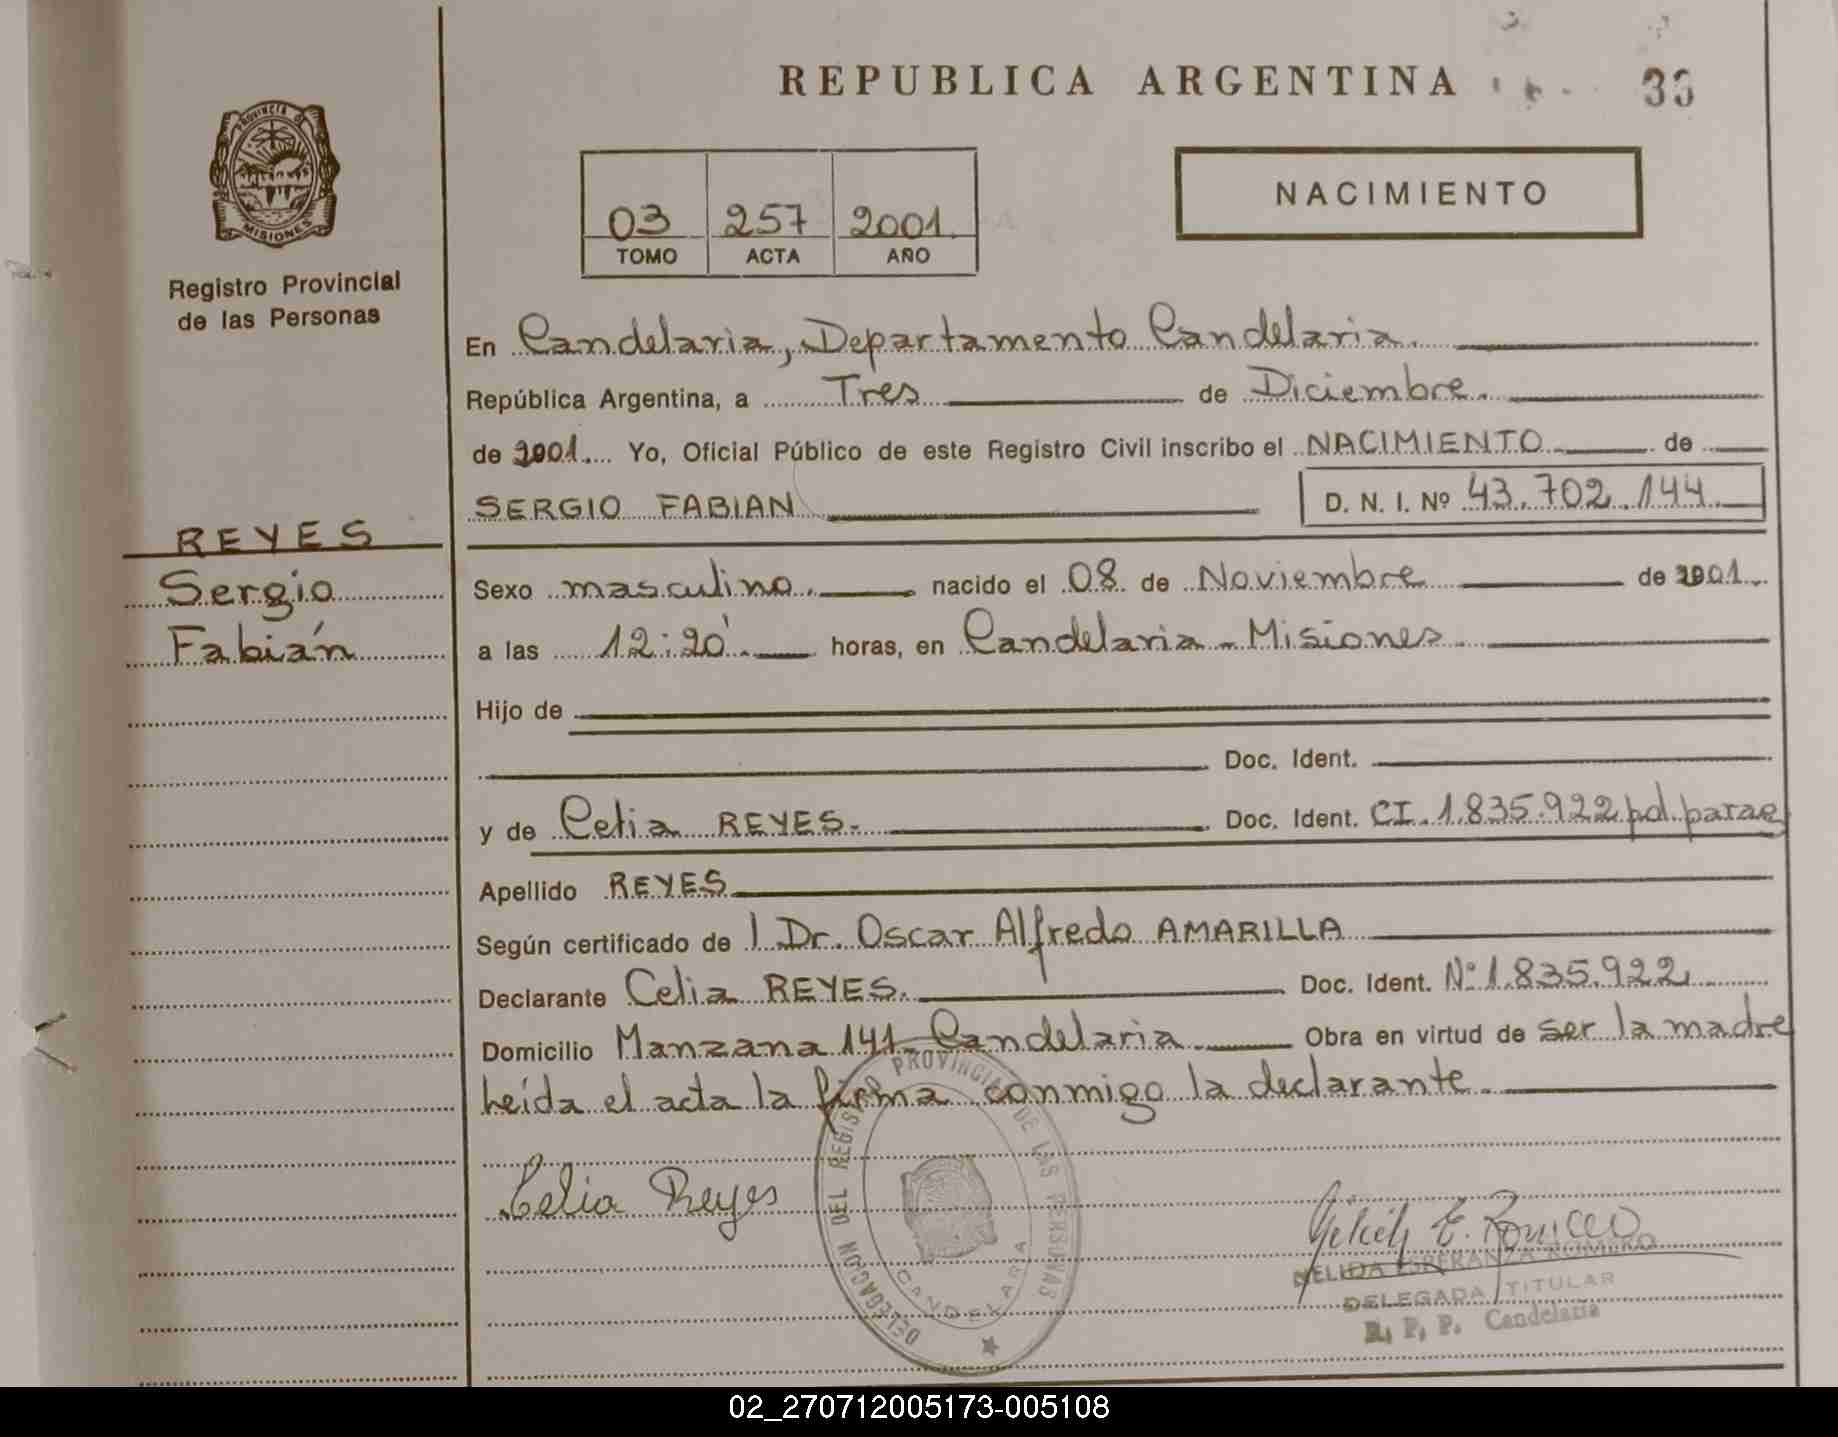 REPUBLICA ARGENTINA
PROVINCIA DE
MISIONES
Registro Provincial
de las Personas
NACIMIENTO
03 257 2001
TOMO ACTA AÑO
En Candelaria, Departamento Candelaria.
República Argentina, a Tres de Diciembre.
de 2001. Yo, Oficial Público de este Registro Civil inscribo el NACIMIENTO de
SERGIO FABIAN D. N. I. Nº 43.702.144.
REYES
Sergio
Fabián
Sexo masculino. nacido el 08 de Noviembre de 2001.
a las 12:20'. horas, en Candelaria - Misiones.
Hijo de
Doc. Ident.
y de Celia REYES. Doc. Ident. CI. 1.835.922 pd. parag
Apellido REYES
Según certificado de l Dr. Oscar Alfredo AMARILLA
Declarante Celia REYES. Doc. Ident. Nº 1.835.922
Domicilio Manzana 141 - Candelaria. Obra en virtud de ser la madre
Leída el acta la firma conmigo la declarante.
Celia Reyes
DELEGACION DEL REGISTRO PROVINCIAL DE LAS PERSONAS
CANDELARIA
NELIDA ESPERANZA ROMERO
DELEGADA TITULAR
R. P. P. Candelaria
02_270712005173-005108